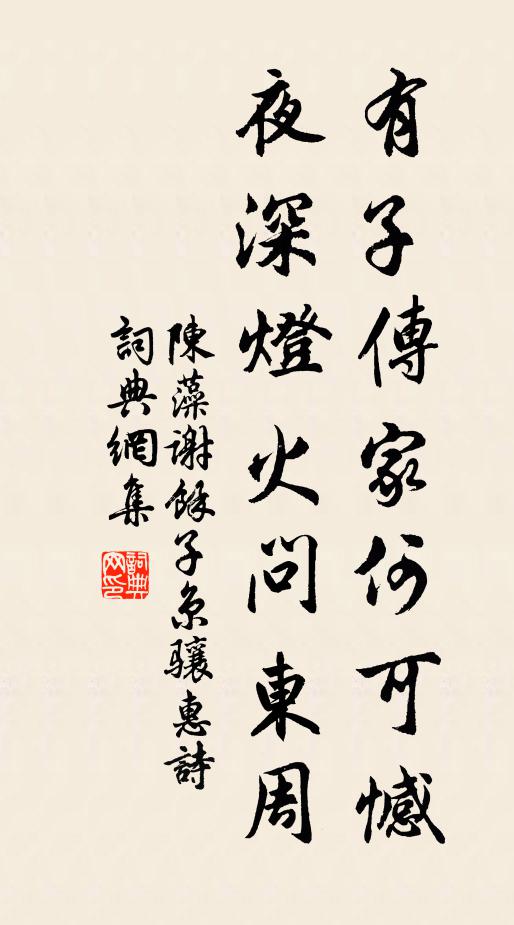 有子傳家何可憾
夜深燈火問東周
陳藻謝餘子京驤惠詩
詞典網集
詞典
网印